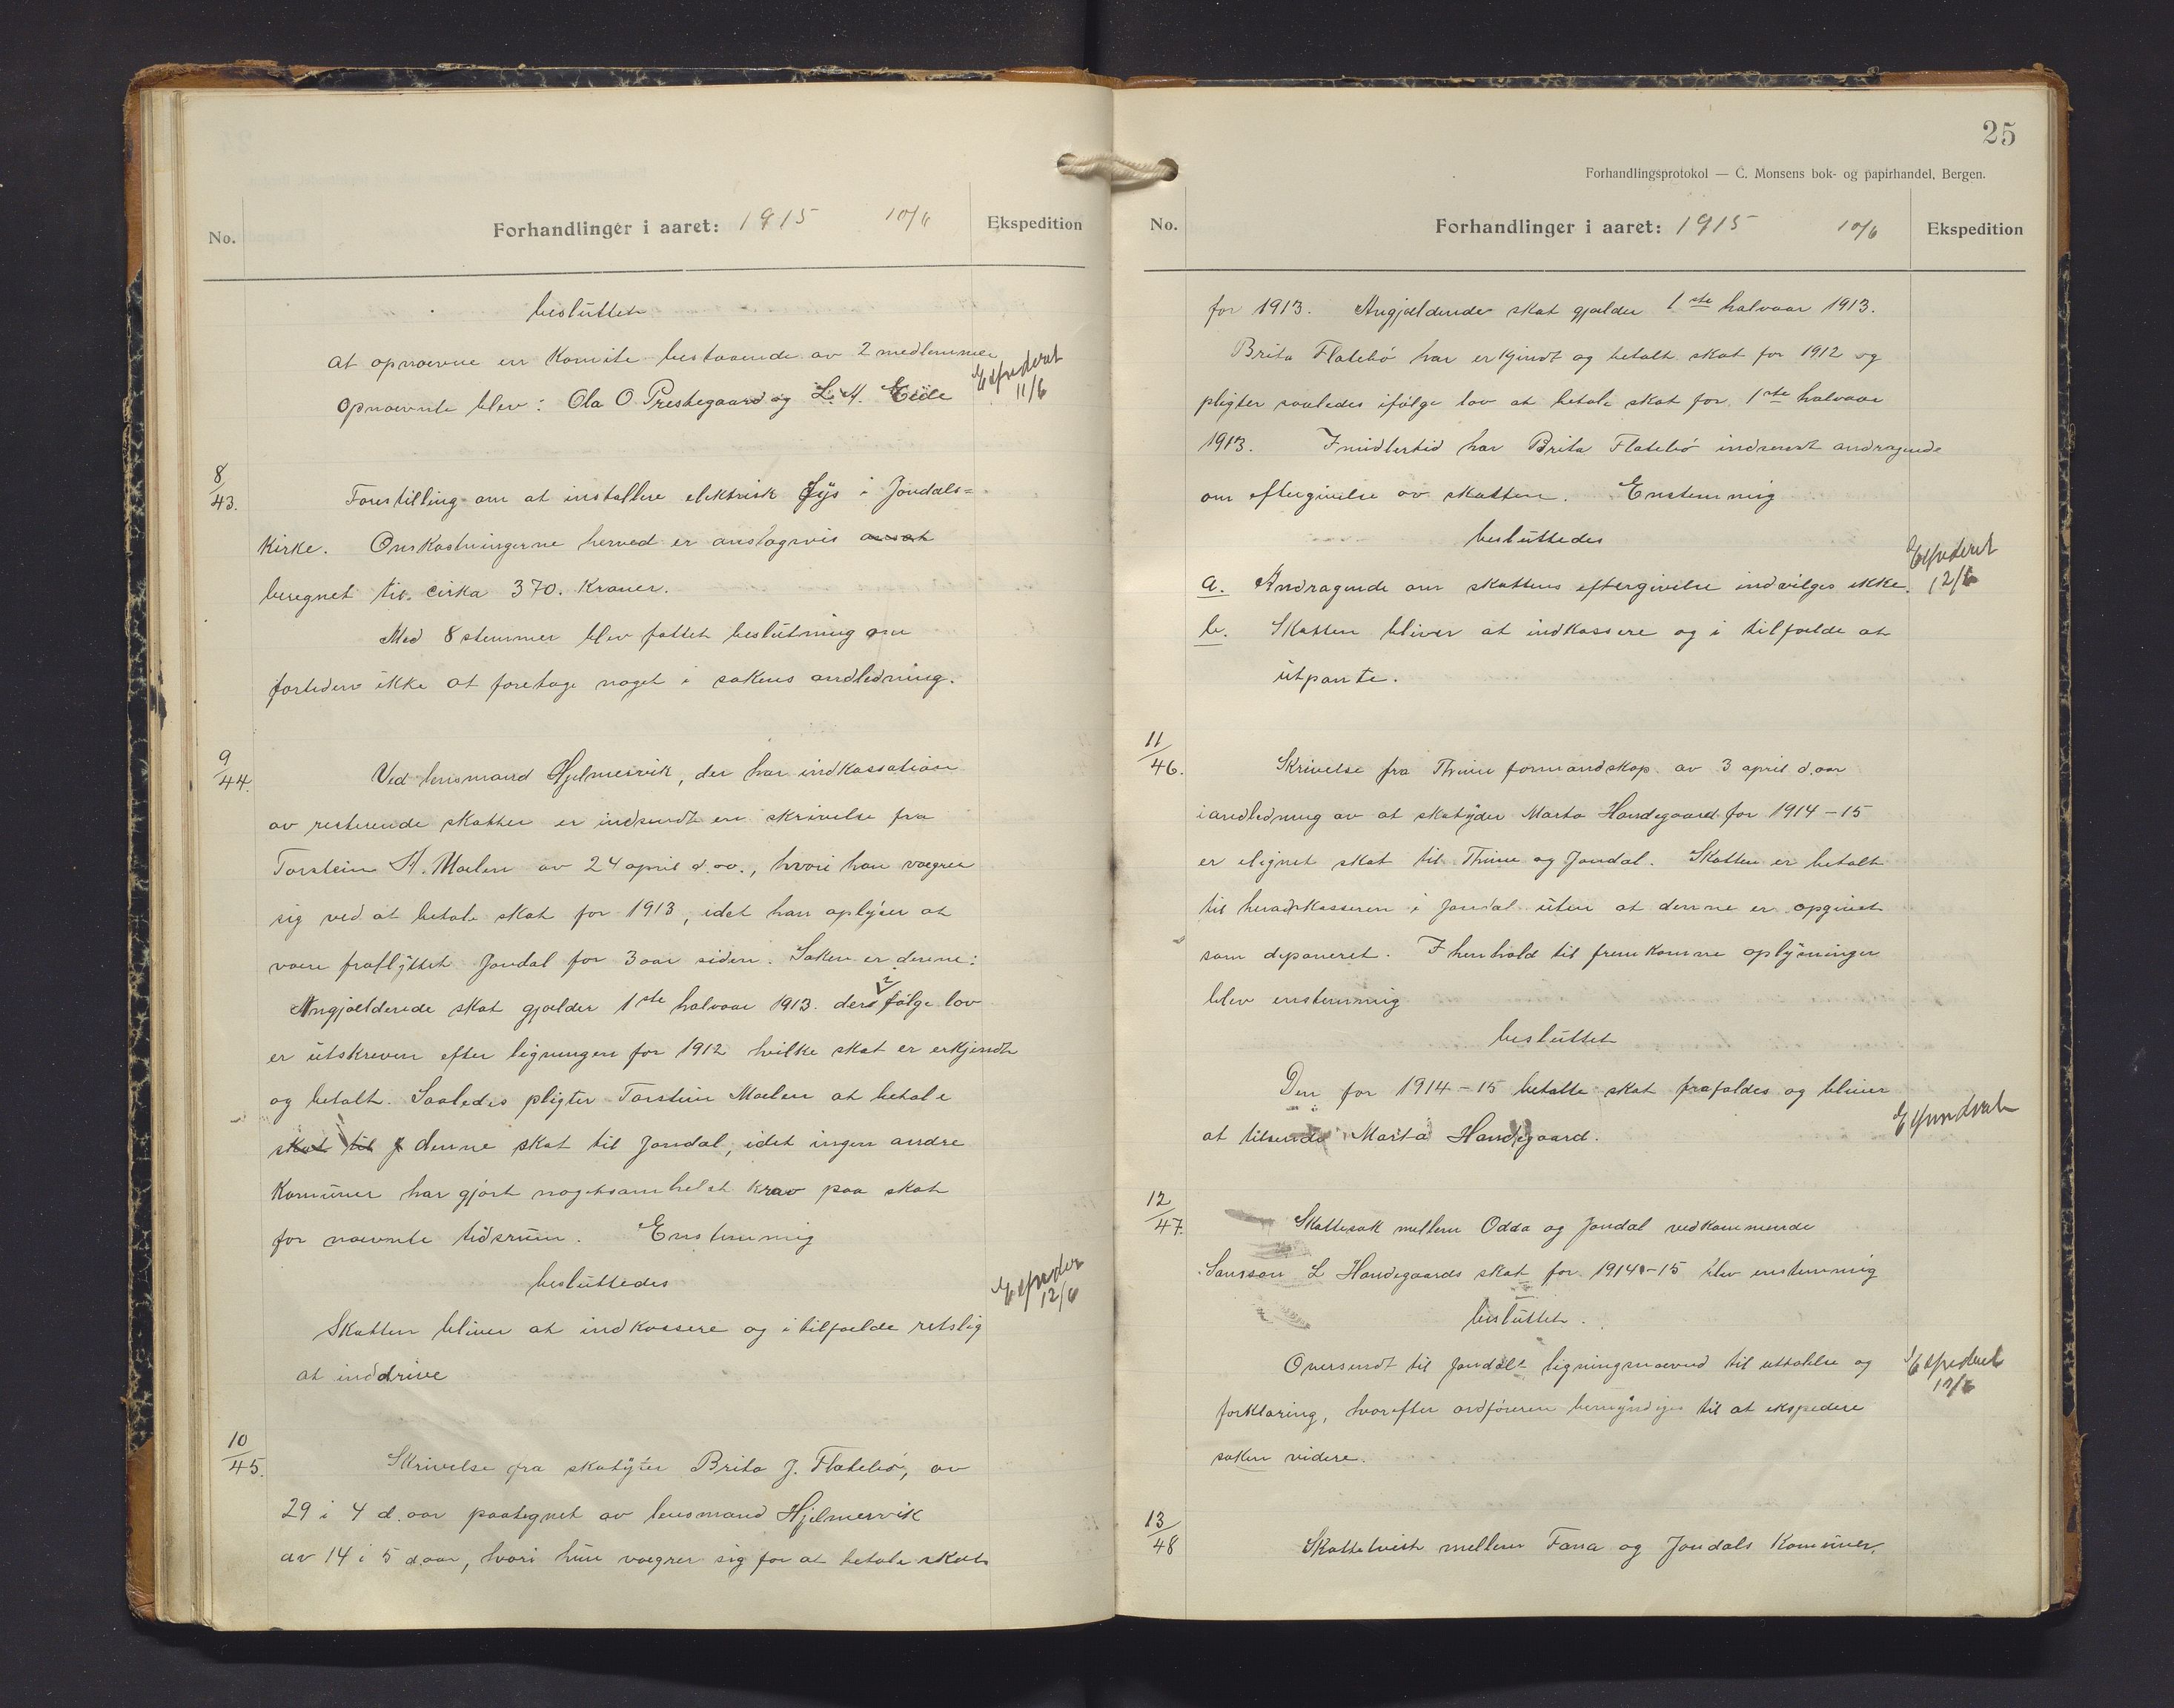 No.
Forhandlinger i aaret: 1915 10/6
Ekspedition
besluttet
at opnævne en Komite bestaaende av 2 medlemmer
Expederet
opnævnte blev: Ola O Prestegaard og L. M. Eide
11/6
8/43.
Forestilling om at installere elektrisk lys i Jondals=
Kirke. Omkostningerne herved er anslagsvis ansat
beregnet til cirka 370. Kroner.
Med 8 stemmer blev fattet beslutning om
fortiden ikke at foretage noget i sakens andledning.
9/44.
Ved lensmand Hjelmervik, der har indkassation
av resterende skatter er indsendt en skrivelse fra
Torstein H. Mælen av 24 april d.aa., hvori han vægrer
sig ved at betale skat for 1913, idet han oplyser at
være fraflyttet Jondal for 3 aar siden. Saken er denne:
Angjældende skat gjælder 1ste halvaar 1913. der i følge lov
er utskreven efter ligningen for 1912 hvilke skat er erkjendt
og betalt. Saaledes pligter Torstein Mælen at betale
skat til J denne skat til Jondal, idet ingen andre
Komuner har gjort nogetsomhelst krav paa skat
for nævnte tidsrum. Enstemmig
besluttedes
Expeder
12/6
Skatten bliver at indkassere og i tilfælde retslig
at inddrive
10/45.
Skrivelse fra skatyter Brita J. Flatebø, av
29 i 4 d. aar paategnet av lensmand Hjelmervik
av 14 i 5 d.aar, hvori hun vægrer sig for at betale skat
25
Forhandlingsprotokol — C. Monsens bok- og papirhandel, Bergen.
No.
Forhandlinger i aaret: 1915 10/6
Ekspedition
for 1913. Angjældende skat gjælder 1ste halvaar 1913.
Brita Flatebø har erkjendt og betalt skat for 1912 og
pligter saaledes ifølge lov at betale skat for 1ste halvaar
1913. Imidlertid har Brita Flatebø indsendt andragende
om eftergivelse av skatten. Enstemmig
besluttedes
Expederet
12/6
a. Andragende om skattens eftergivelse indvilges ikke.
b. Skatten bliver at indkassere og i tilfælde at
utpante.
11/46.
Skrivelse fra Thime formandskap av 3 april d.aar
i andledning av at skatyder Marta Handegaard for 1914-15
er elignet skat til Thime og Jondal. Skatten er betalt
til heradskasseren i Jondal uten at denne er opgivet
som deponeret. I henhold til fremkomne oplysninger
blev enstemmig
besluttet
Den for 1914-15 betalte skat frafaldes og bliver
at tilsende Marta Handegaard.
12/47.
Skattesak mellem Odda og Jondal vedkommende
Samson L Handegaards skat for 1914-15 blev enstemmig
besluttet.
Oversendt til Jondals ligningsnævnd til uttalelse og
Expederet
12/6
forklaring, hvorefter ordføreren bemyndiges til at ekspedere
saken videre.
13/48
Skattetvist mellem Fana og Jondals Komuner.